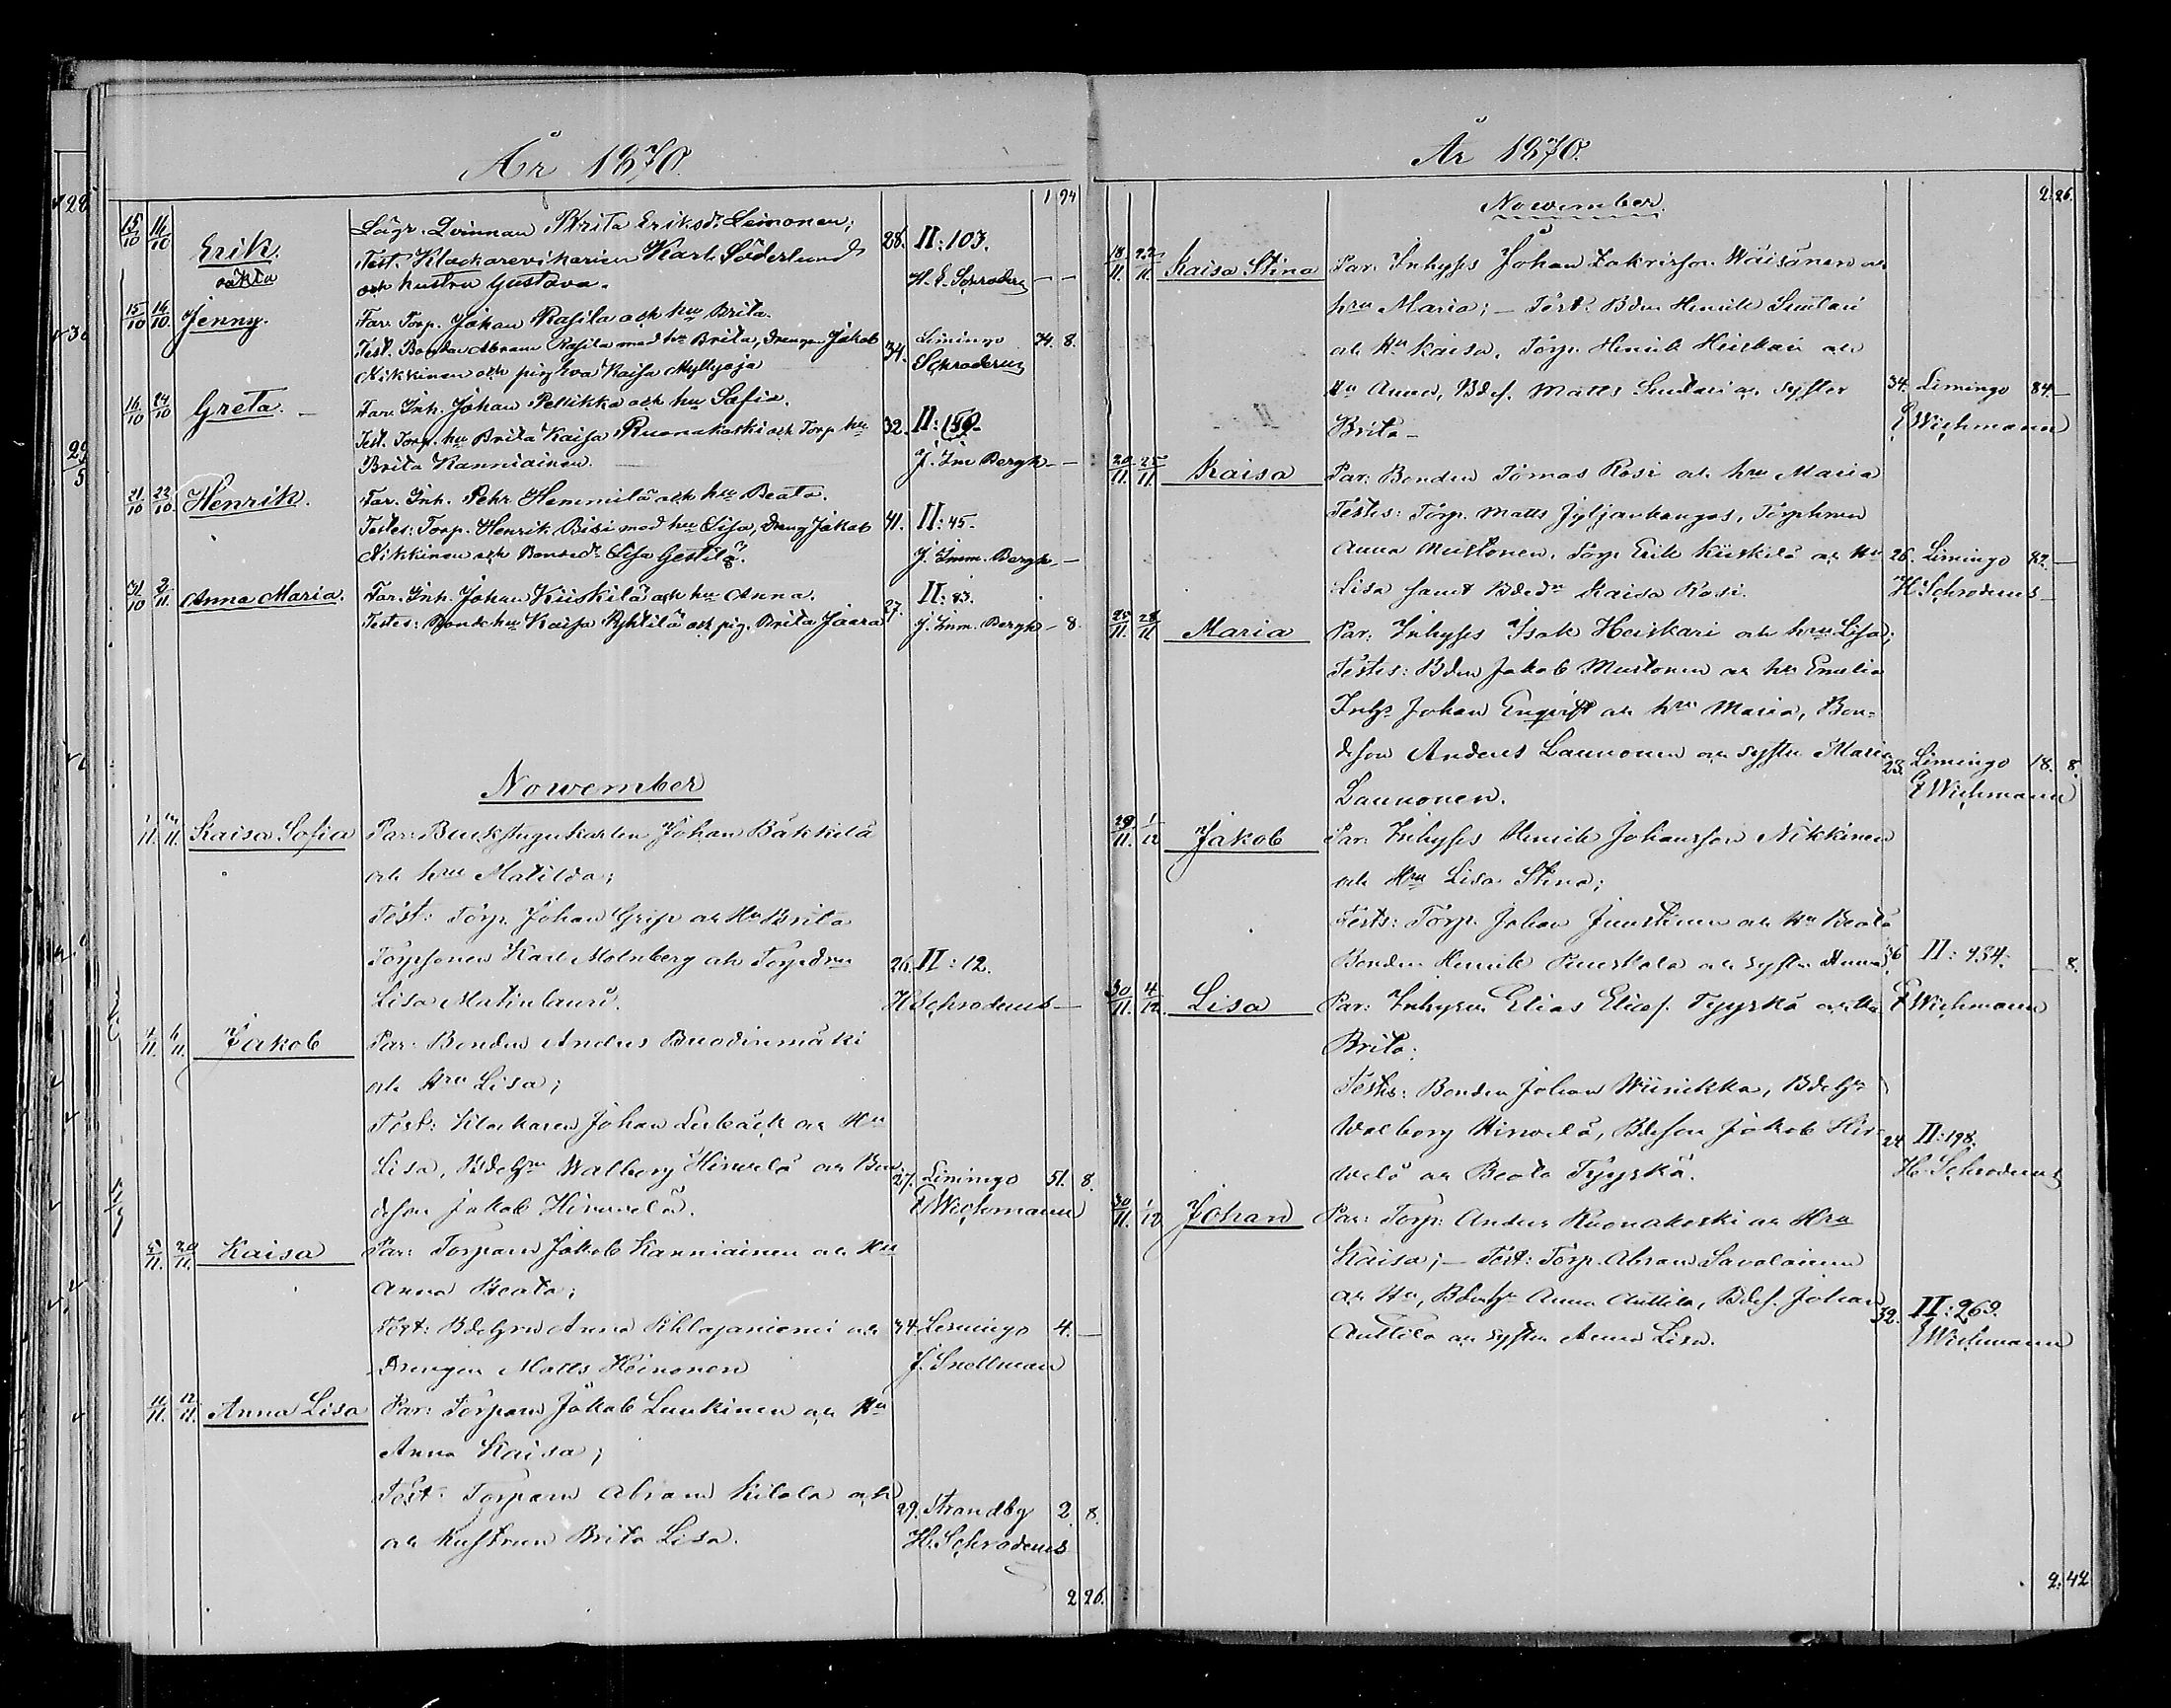 År 1870.
1 94
15/10 16/10 Erik. oäkta
Lägr. Qvinnan Brita Eriksd. Leinonen;
Test. Klockarevikarien Karl Söderlund 28. II: 103.
och hustru Gustava. H. E. Schroderus — —
15/10 16/10 Jenny.
Far. Torp. Johan Rasila och hu Brita.
Test. Bonden Abram Rasila med hu Brita, Drengen Jakob 34. Limingo 74. 8.
Nikkinen och pig Kaisa Myllyoja Schroderus
16/10 24/10 Greta. —
Far. Inh. Johan Pellikka och hu Safia.
Test. Torp. hu Brita Kaisa Ruonakoski och Torp hu 32. II: 159.
Brita Kanniainen. J. Im Bergh — —
21/10 23/10 Henrik.
Far. Inh. Pehr Hemmilä och hu Beata.
Testes: Torp. Henrik Bisi med hu Lisa, Dreng Jakob 41. II: 45.
Nikkinen och Bonded. Lisa Gestilä. J. Imm. Bergh —
31/10 2/11 Anna Maria.
Far. Inh. Johan Kiiskilä och hu Anna. 27. II: 83.
Testes: Bonde hu Kaisa Ryhtilä och pig. Brita Jaara J. Imm. Bergh — 8.
Nowember
Kaisa Sofia Par: Johan Bäkkilä
och hru Matilda;
Test: Torp. Johan Grip och Hu Brita
Torpsonen Karl Molnberg och Torpdrn 26. II: 12.
Lisa Matinlauri. H Schroderus —
4/11 6/11 Jakob Par: Bonden Anders Buodinmäki
och Hru Lisa;
Test: Klockaren Johan Lerbäck och Hu
Lisa, Bdehru Walborg Hirwelä och Bon- 27. Limingo 51. 8.
deson Jakob Hirwelä. E Wichmann
5/11 20/11 Kaisa Par: Torparn Jakob Kanniainen och Hu
Anna Beata;
Test: Bdehrn Anna Ihlajaniemi och 34 Limingo 4. —
Drengen Matts Heinonen J. Snellman
11/11 12/11 Anna Lisa Par: Torparn Jakob Luukinen och Hu
Anna Kaisa;
Test: Torparn Abram Kilola och 29. Strandby 2 8.
och Hustrun Brita Lisa. H. Schroderus
2 26.
År 1870.
2. 26.
Nowember.
18/11. 22/11 Kaisa Stina Par. Inhyses Johan Zakrisson Wäisänen och
hru Maria; — Test: Bden Henrik Suutari
och Hu Kaisa, Torp. Henrik Heiskari och
Hu Anna, Bdes. Matts Suutari och syster 34. Limingo 84. —
Brita — E Wichmann
20/11 25/11 Kaisa Par: Bonden Tomas Rosi och hru Maria
Testes: Torp. Matts Jyljänkangas, Torphrun
Anna Mustonen, Torp Erik Kiiskilä och Hu 26. Limingo 82. —
Lisa samt Bdedr Kaisa Rosi. H. Schroderus —
25/11. 28/11 Maria Par: Inhyses Isak Heiskari och hru Lisa;
Testes: Bden Jakob Mustonen och hu Emelia
Inhs Johan Enqvist och hru Maria, Bon-
deson Anders Launonen och syster Maria 23. Limingo 18. 8.
Launonen. E Wichmann
29/11. 1/12 Jakob Par. Inhyses Henrik Johansson Nikkinen
och Hru Lisa Stina;
Tests: Torp. Johan Juustinen och Hu Beata
Bonden Henrik och syster Anna 36 II: 434. — 8.
30/11. 4/12. Lisa Par: Inhysen Elias Elias. Tyyskä och Hu E Wichmann
Brita;
Testes: Bonden Johan Wiinikka, Bdehr
Walborg Hirwelä, Bdeson Jakob Hir- 24. II: 198.
welä och Beata Tyyskä. H. Schroderus
30/11. 1/12 Johan Par: Torp: Anders Ruonakoski och Hru
Kaisa; — Test: Torp. Abram Savolainen
och Hu, Bdehr Anna Anttila, Bdes. Johan 32. II: 269.
Anttila och syster Anna Lisa. E Wichmann
2. 42